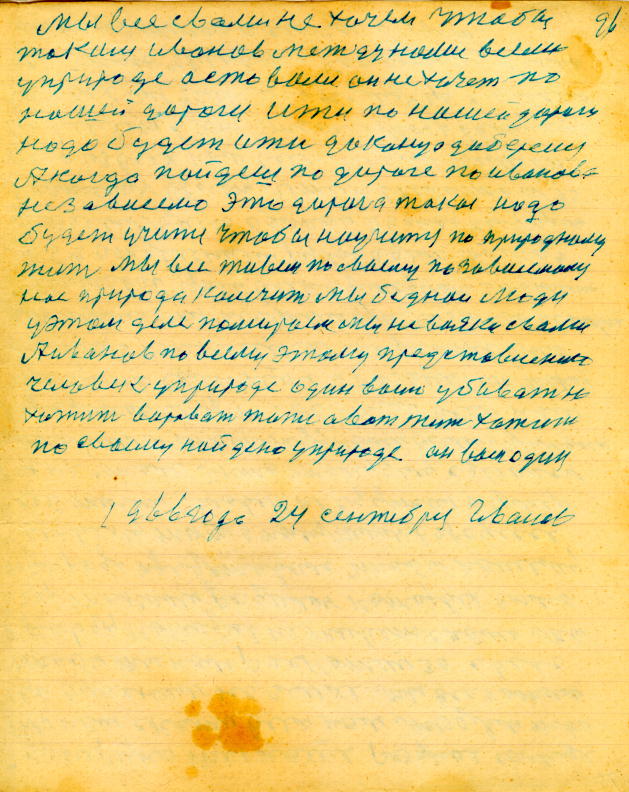 96
мы все свами не хочем чтобы
таким иванов между нами всеми
уприроде оставали он не хочет по
нашей дороги итти по нашей дороги
надо будет ити до концо доберемся
А когда пойдеш по дороге по иванова
независемо это дорога такая надо
будет учити чтобы научится по природному
жит мы все живем по своему по зависемому
нас природа калечит мы бедная люди
уэтом деле помираем мы не вояки свами
А иванов повсему этому представлению
человек уприроде один вои убиват не
хотит вороват тоже а вот жит хотит
по своему найдено уприроде он вам один
1966 года 24 сентебря Иванов